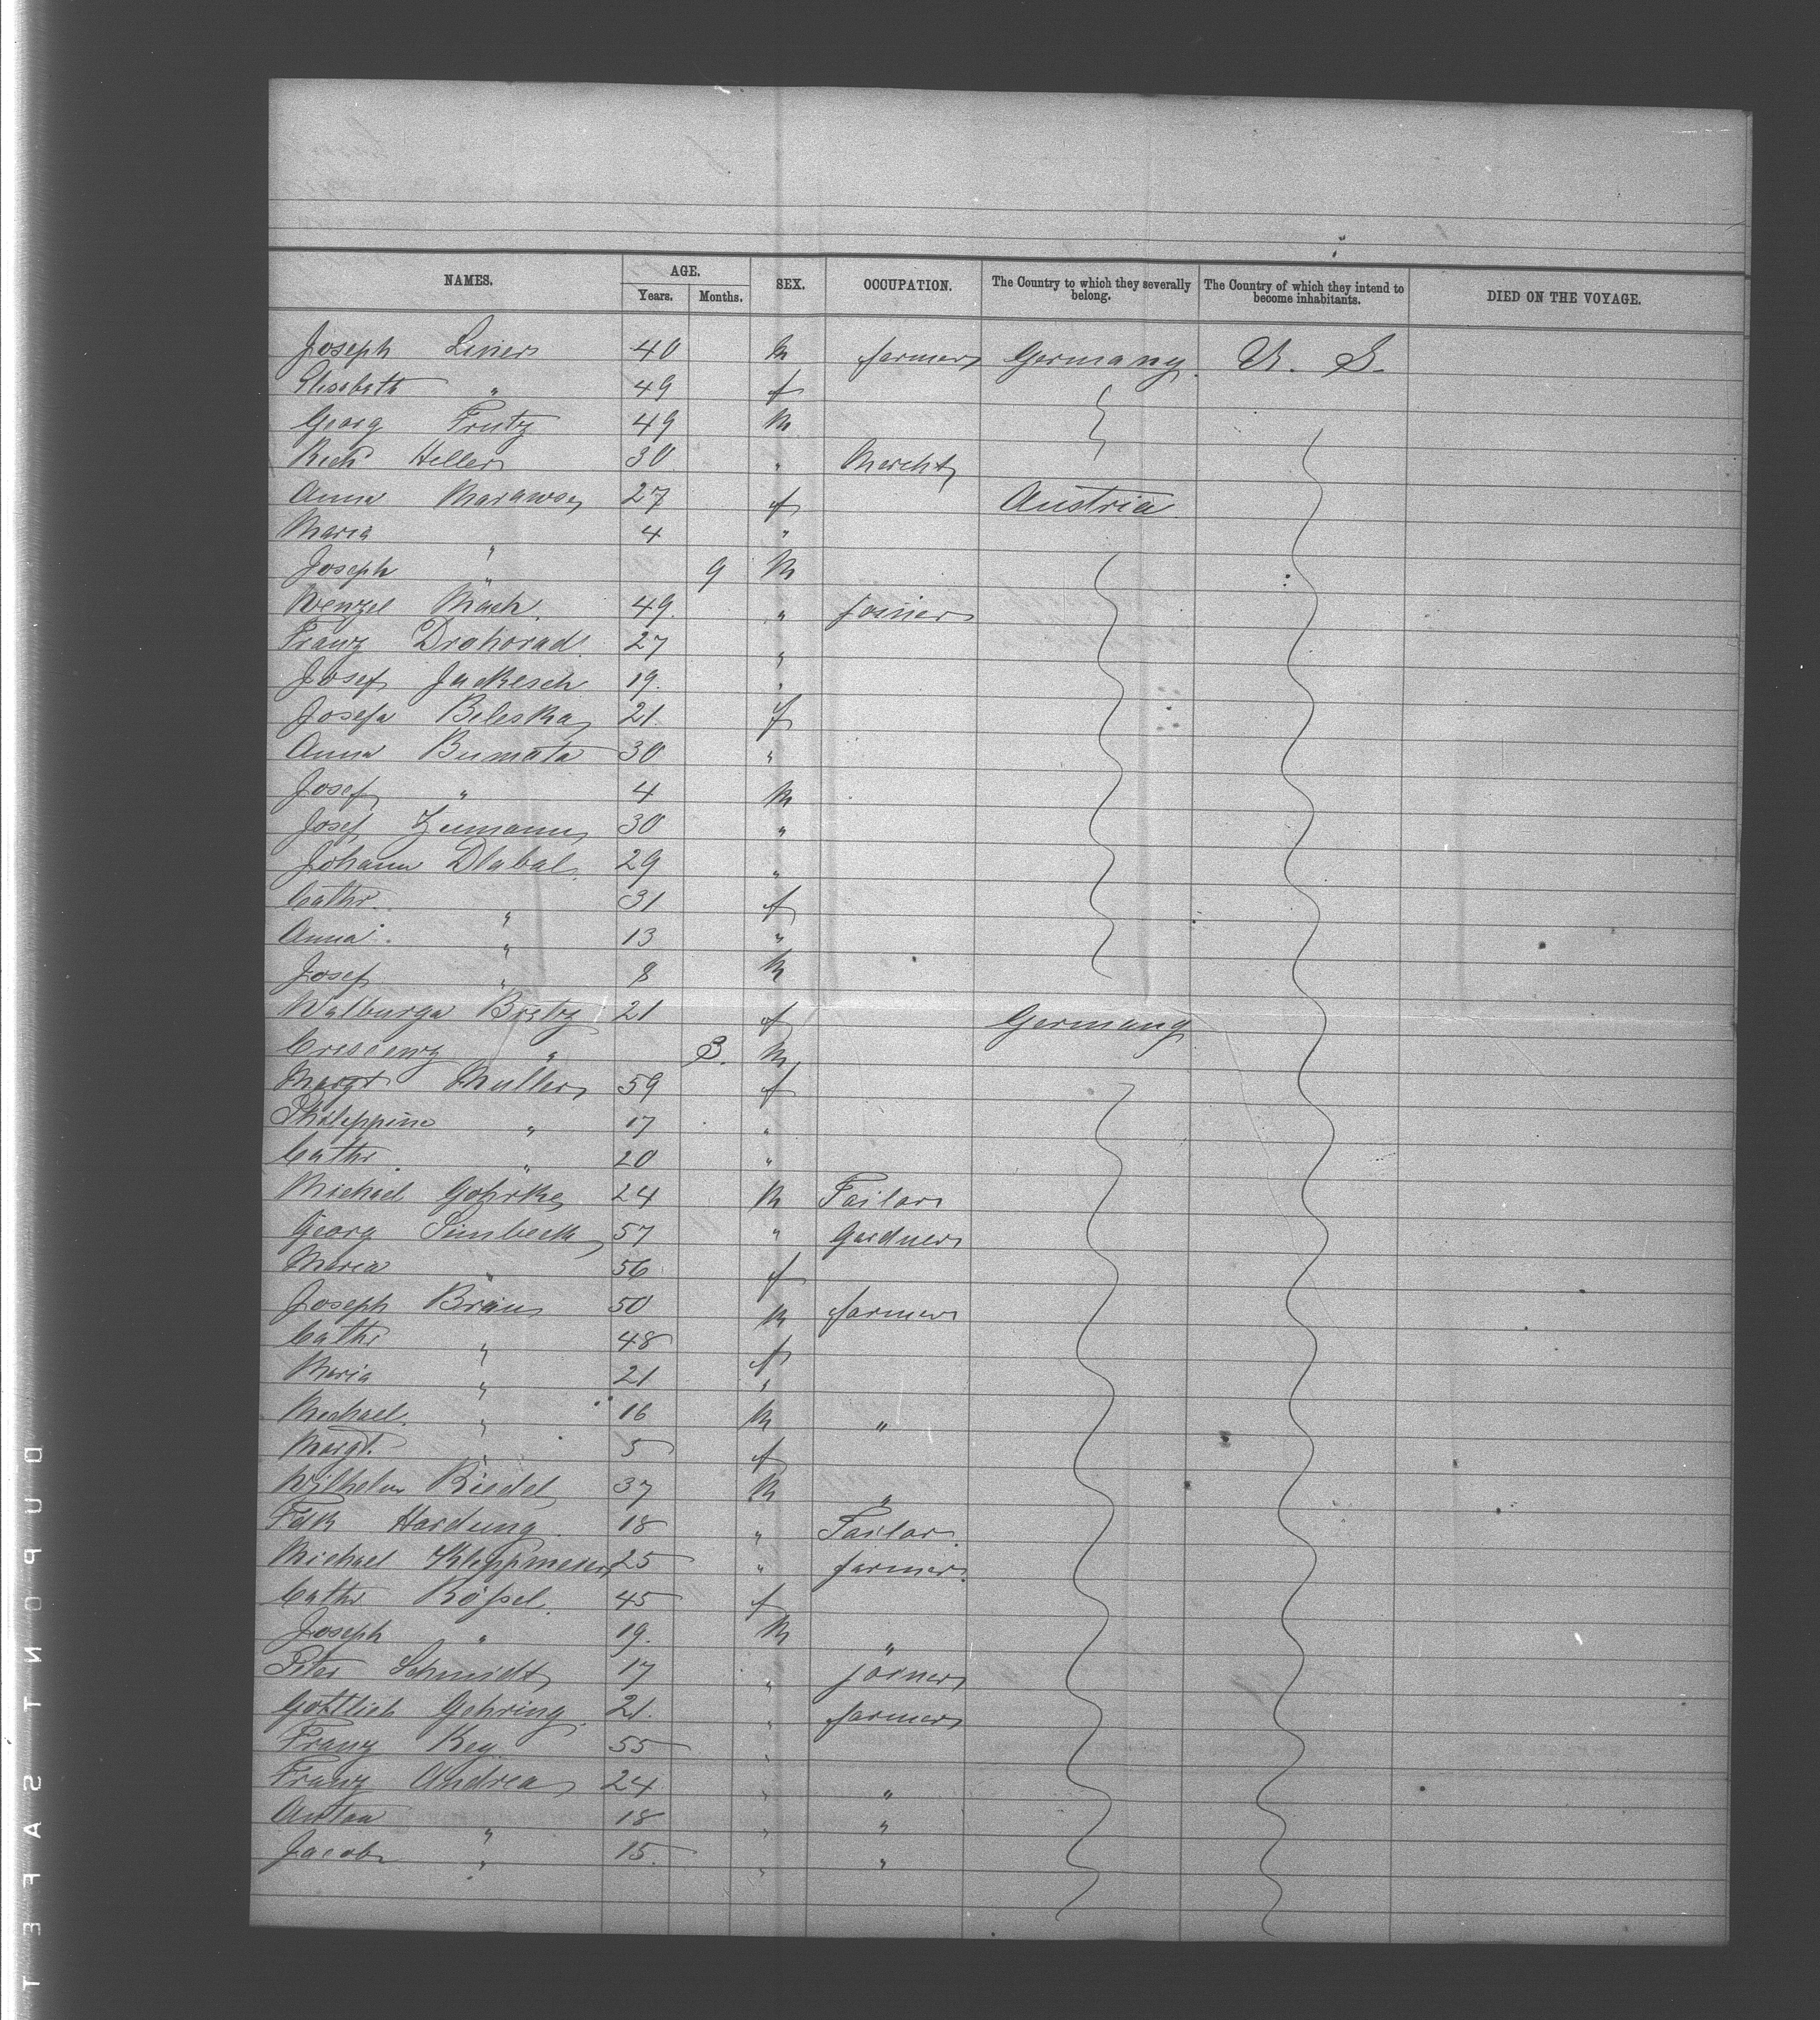 NAMES. AGE. SEX. OCCUPATION. The Country to which they severally belong. The Country of which they intend to become inhabitants. DIED ON THE VOYAGE.
Years. Months.
Joseph 40 M farmer Germany U. S.
Elisabeth " 49 f
Georg 49 M
Heller 30 " Mercht
Anna 27 f Austria
Maria " 4 "
Joseph " 9 M
Wenzel Mach 49 " joiner
Franz Drahorad 27 "
Josef Jackesch 19 "
Josefa Beleska 21 f
Anna Bumata 30 "
Josef " 4 M
Josef Zumann 30 "
Johann Dlabal 29 "
Cathr. " 31 f
Anna " 13 "
Josef " 8 M
Walburga 21 f Germany
Crescenz " 3 M
Margt Muller 59 f
Philippine " 17 "
Cathr. " 20 "
Michael Gohrke 24 M Tailor
Georg Simbeck 57 " Gardner
Maria " 56 f
Joseph Braun 50 M farmer
Cathr " 48 f
Maria " 21 "
Michael " 16 M "
Margt. " 5 f
Wilhelm Riedel 37 M "
Fdk Hardung 18 " Tailor
Michael Kleppmeier 25 " farmer
Cathr Rößel 45 f
Joseph " 19 M "
Peter Schmidt 17 " joiner
Gottlieb Gehring 21 " farmer
Franz Rey 55 "
Franz Andrea 24 " "
Anton " 18 " "
Jacob " 15 " "
DUPONT SAFET